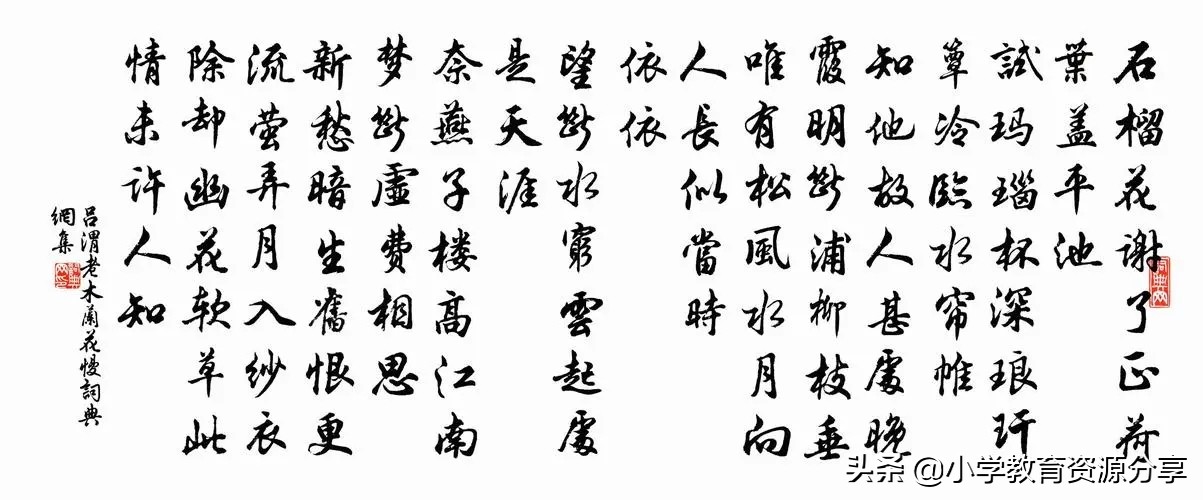 石榴花谢了正荷
葉盖平池
試玛瑙杯深琅玕
簟冷臨水帘帷
知他故人甚處晚
霞明斷浦柳枝垂
唯有松風水月向
人長似當時
依依
望斷水窮雲起處
是天涯
奈燕子楼高江南
梦斷虛費相思
新愁暗生舊恨更
流萤弄月入纱衣
除却幽花软草此
情未许人知
呂渭老木蘭花慢詞典
網集
头条 @小学教育资源分享